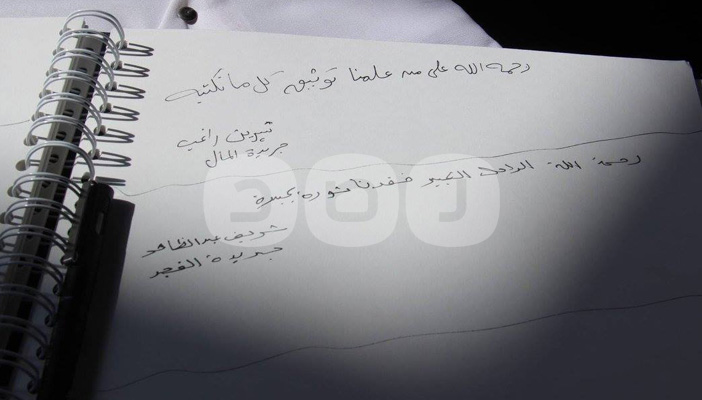 رحمة الله على من علمنا توثيق كل ما نكتبه
شيرين راغب
جريدة المال
رحمة الله الراحل الكبير فقدنا ثورة كبيرة
شريف عبد الظاهر
جريدة الفجر